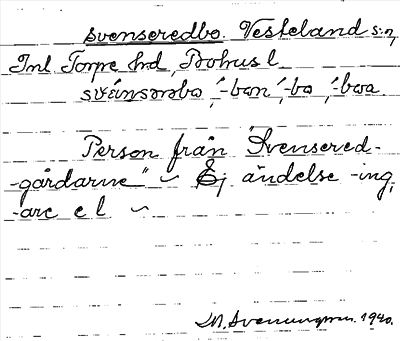 svenseredbo. Vesteland s:n,
Inl Torpe hd, Bohusl
svänsərəbo, -bon, -bo, -boa.
Person från "Svensered-
-gårdarne" ~ Ej ändelse -ing,
-are e l ~
1940.